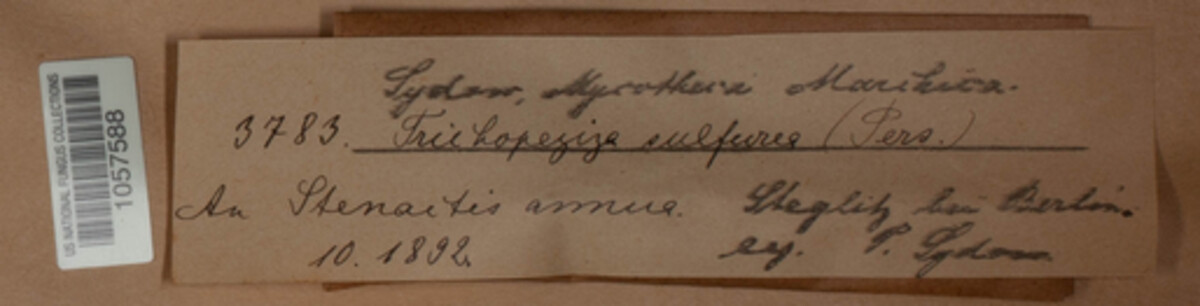 US NATIONAL FUNGUS COLLECTIONS
1057588
Sydow, Mycotheca Marchica.
3783. Trichopeziza sulfurea (Pers.)
An Stenactis annua. Steglitz bei Berlin.
10. 1892. leg. P. Sydow.